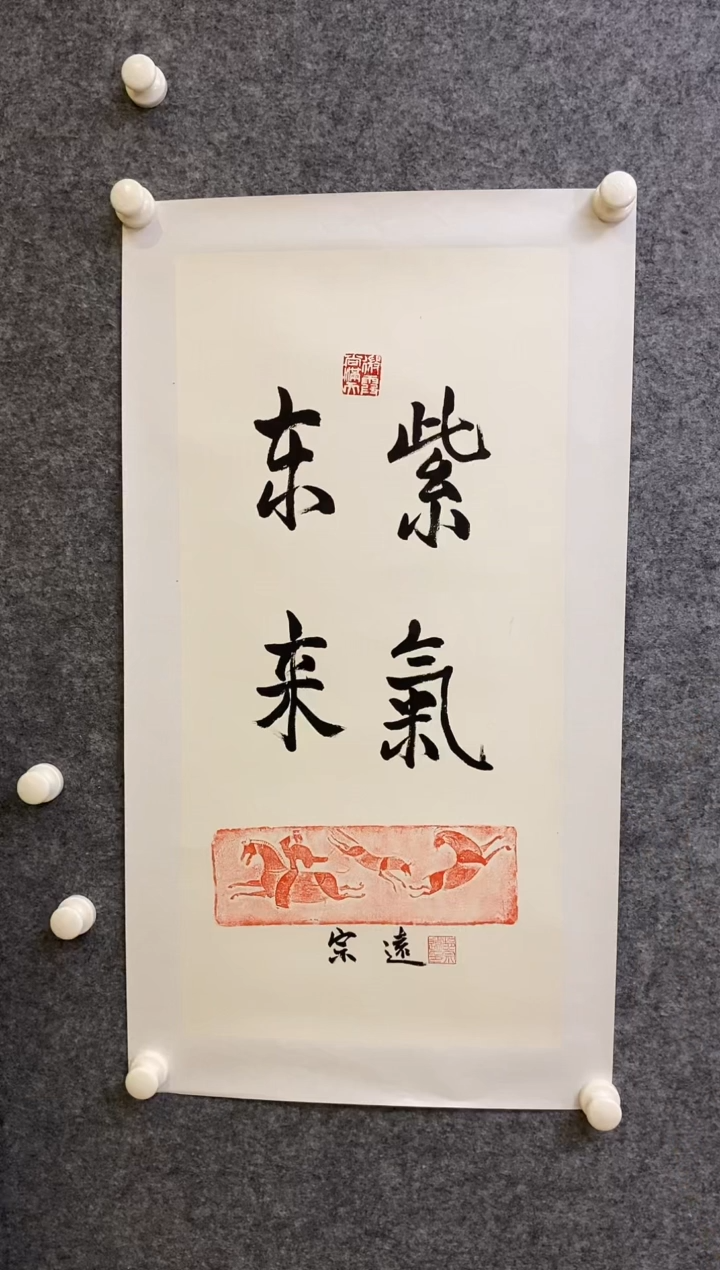 紫氣
东来
宗遠